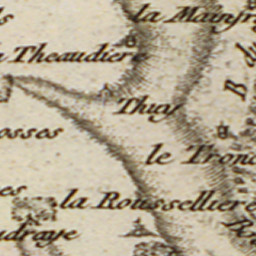 la Mainfr
Theaudiere
B
Thuas
osses
le Tron
la Rousselliere
udraye